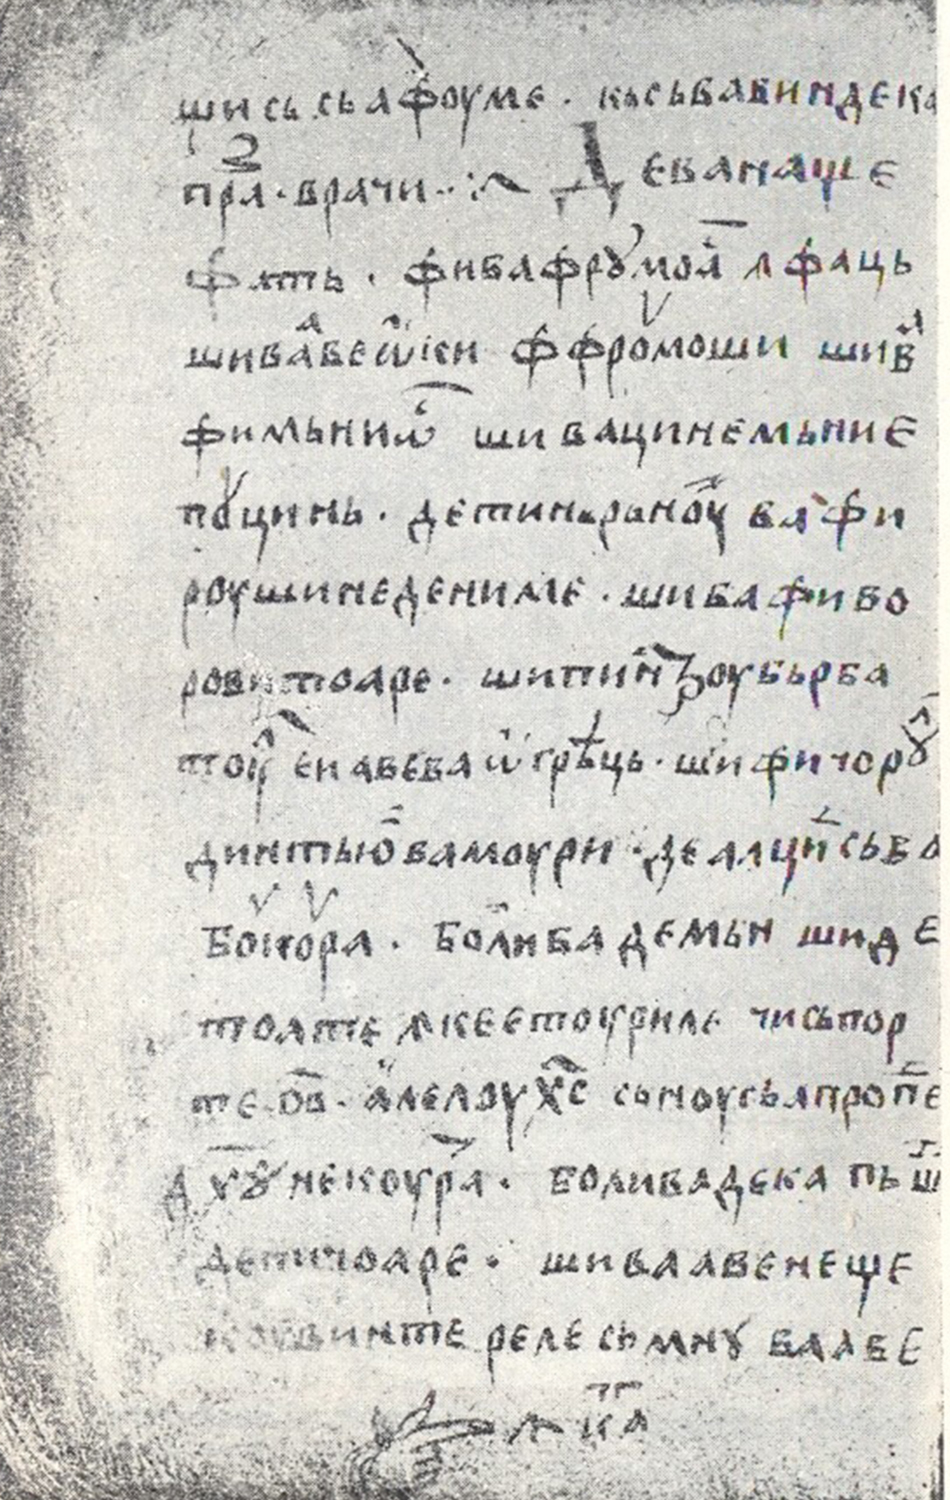 шисьсьафоуме · кьсьвавиндека
прла · врачи ·:~ Деванаще
фѧть · фивафрꙋмоа ꙟфаць
шивавеѡки ффрꙋмоши шива
фимьниѡ шивацинемьние
пꙋцинь · детиньрьноу вафи
роушинедениме · шивафиво
ровитоаре · шипинꙃоубьрба
тои енавеваѡгрѣць · шифичорꙋ
динтьювамоури · деалцисьва
боитора · болива демьн шиде
тоате ꙟкеетоуриле чисьпор
те ѡв · алелоу хс сьноусьапропе
дꙋхꙋнекоура · боливадека пьш
депичоаре · шиваавенеще
коувинте релесьмнꙋ ваавѣ
ꙟ ка